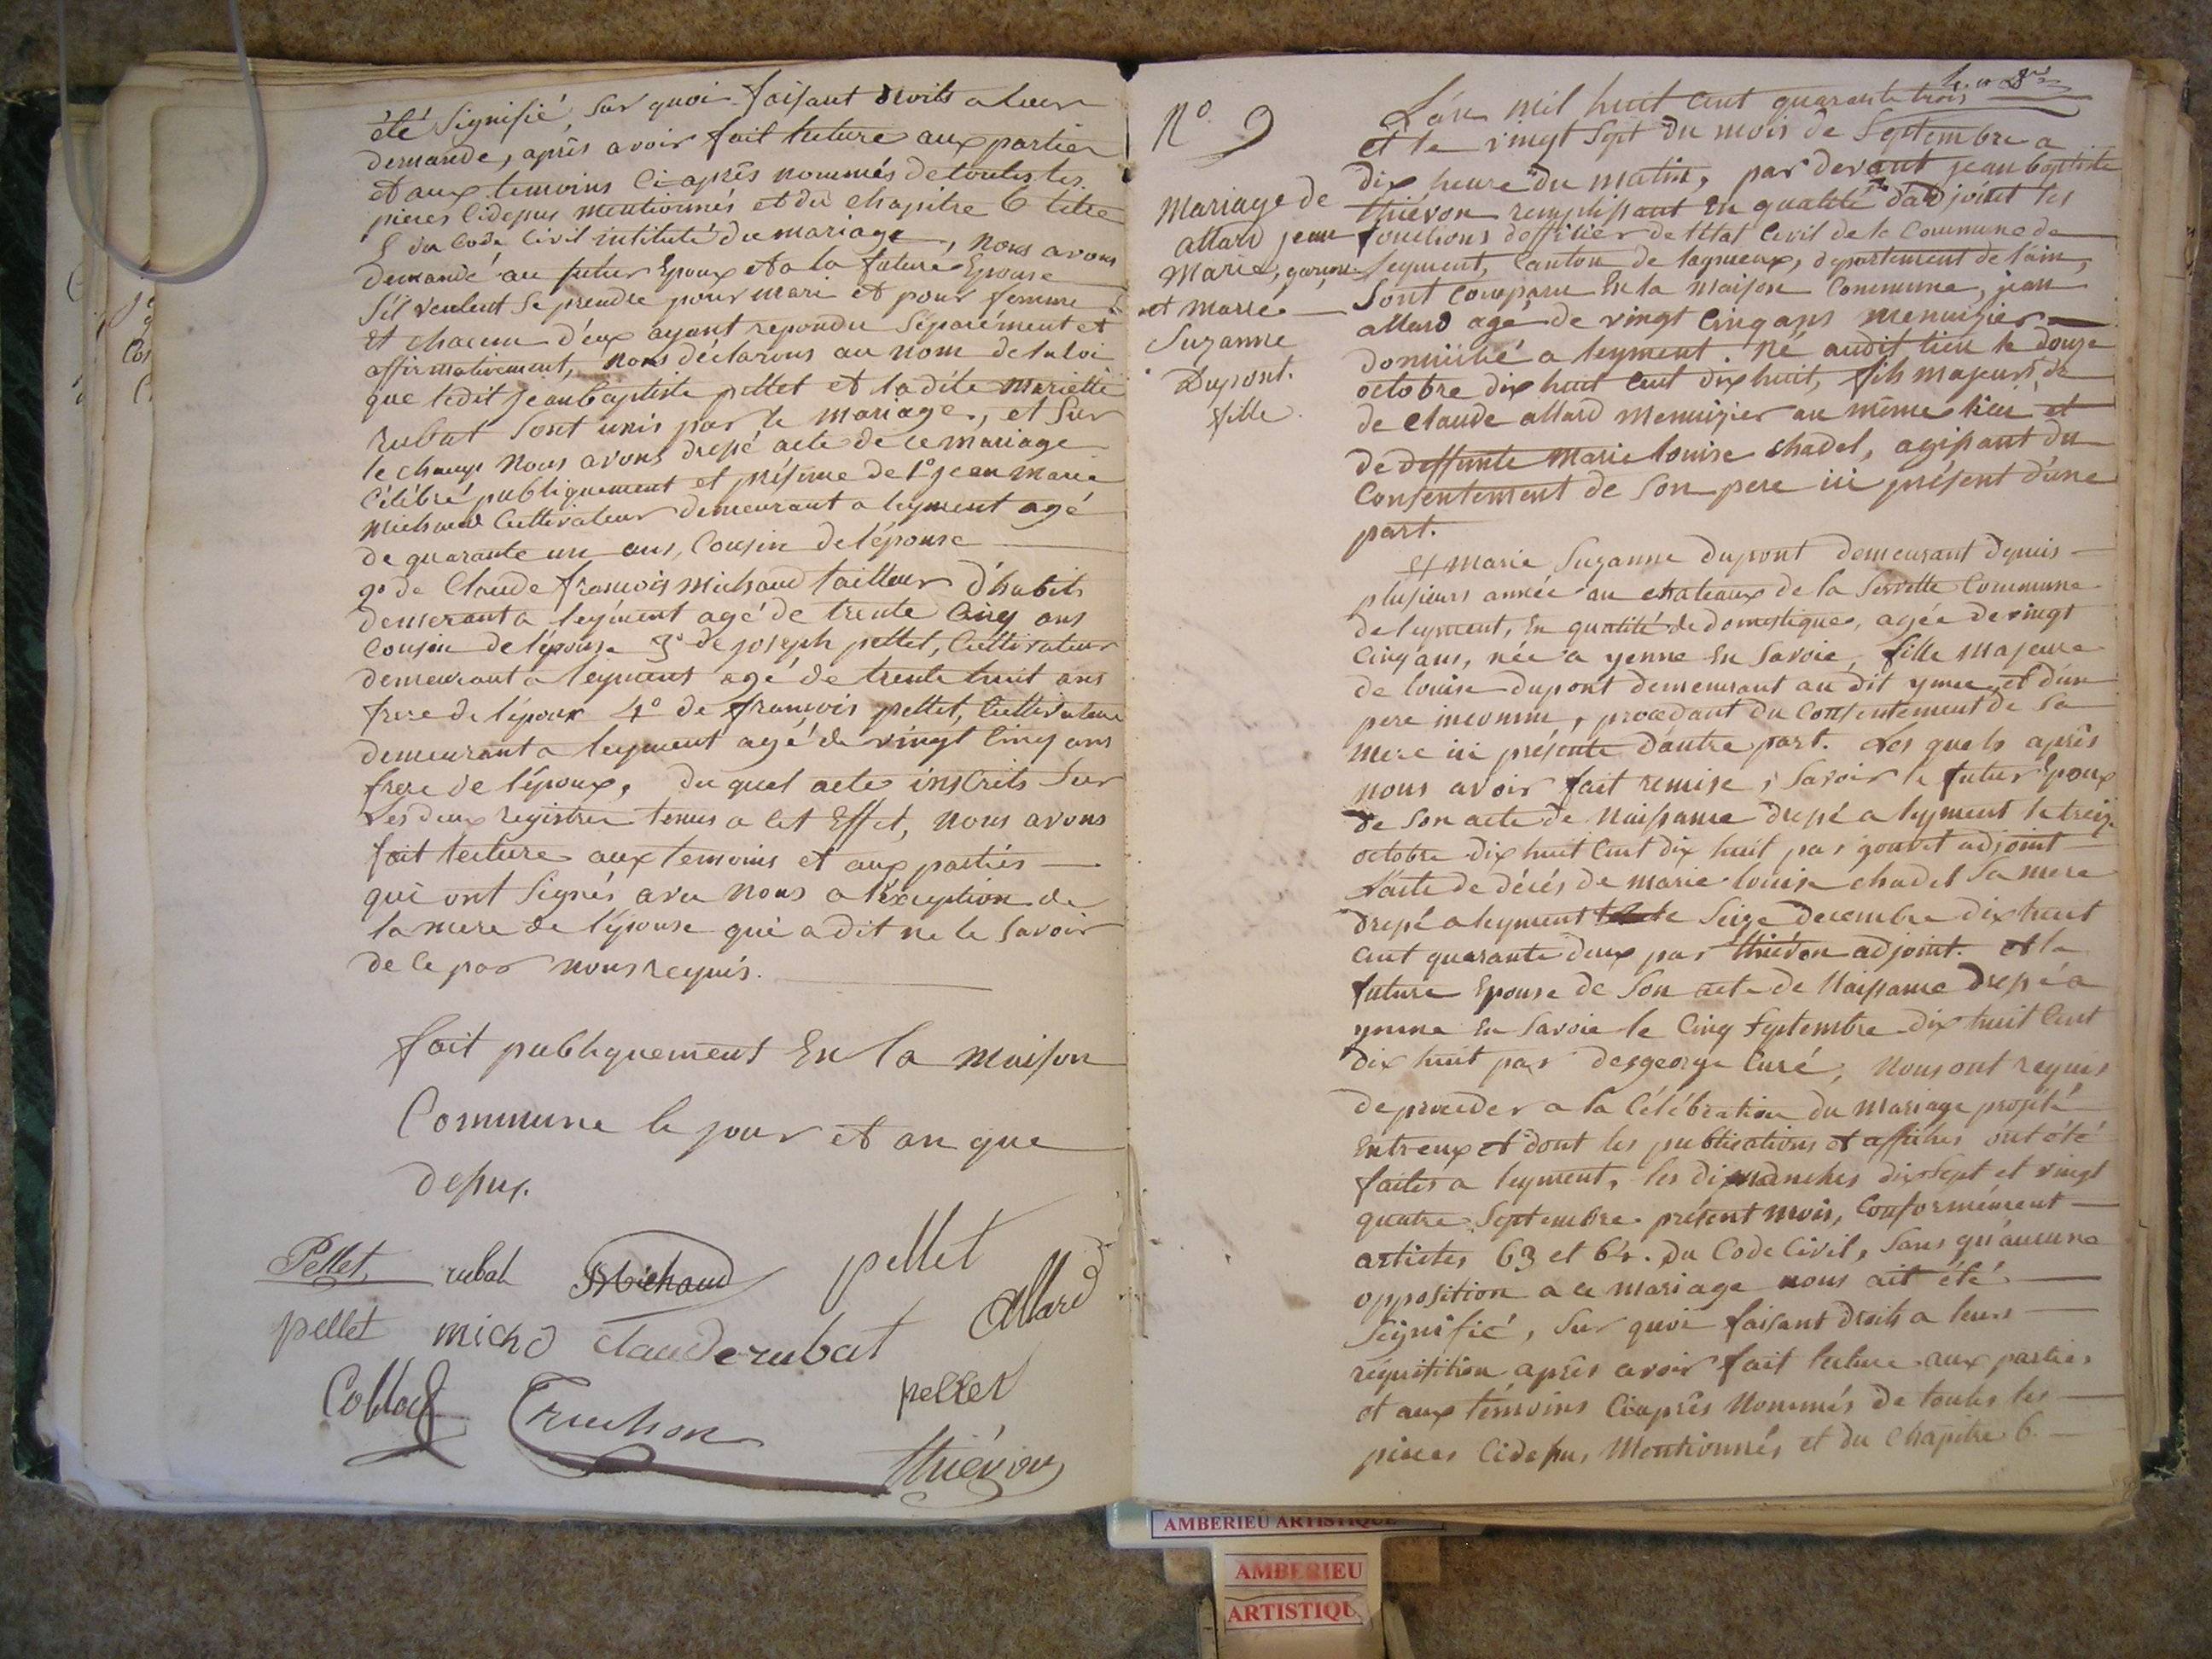 été Signifié, Sur quoi faisant droits a leur
demande, après avoir fait lecture aux parties
et aux temoins Ci après nommés de toutes les
pieces Cidepus mentionnés et du chapitre 6 titre
5 du Code Civil intitulé du mariage, nous avons
demandé au futur Epoux et a la future Epouse
S'il veulent Se prendre pour mari et pour femme
et chacun d'eux ayant repondu Séparément et
affirmativement, nous déclarons au nom de la loi
que ledit jean baptiste pellet et la dite Mariette
rubat Sont unis par le mariage, et Sur
le champ nous avons drepé acte de ce mariage
Célébré publiquement et présence de 1° jean marie
Michaud Cultivateur demeurant a leyment agé
de quarante un ans, Cousin de l'épouse
2° de Claude françois Michaud tailleur d'habits
demeurant a leyment agé de trente Cinq ans
Cousin de l'épouse 3° de joseph pellet, Cultivateur
demeurant a leyment agé de trente huit ans
frere de l'époux 4° de françois pellet, Cultivateur
demeurant a leyment agé de vingt Cinq ans
frere de l'époux, du quel acte inscrits Sur
Les deux registres tenus a Cet Effet, nous avons
fait lecture aux temoins et aux partiés
qui ont Signés avec nous a l'éxception de
la mere de l'épouse qui a dit ne le Savoir
de Ce par nous requis.
fait publiquement En la maison
Commune le jour et an que
depus.
Pellet rubat Michaud pellet
pellet micho Claude rubat Allard
Collod Truchon pellet
thiévon
N° 9
Mariage de
allard jean
Marie, garçon
et marie
Suzanne
Dupont.
fille.
L'an mil huit Cent quarante trois
et le vingt Sept du mois de Septembre a
dix heure du matin, par devant jean baptiste
thiévon remplissant En qualité d'adjoint les
fonctions d'officier de l'état Civil de la Commune de
Leyment, Canton de lagnieux, departement de l'ain,
Sont Comparu En la maison Commune, jean
allard agé de vingt Cinq ans menuizier
domicilié a leyment. Né audit lieu le douze
octobre dix huit Cent dix huit, fils majeurs de
de Claude allard Menuizier au même lieu et
de deffunte Marie louise Chadel, agissant du
Consentement de Son pere ici présent d'une
part.
Et Marie Suzanne dupont demeurant depuis
plusieurs année au chateaux de la Servette Commune
de leyment, En qualité de domestique, agée de vingt
Cinq ans, née a yenne En Savoie, fille majeure
de louise dupont demeurant au dit yenne et d'un
pere inconnu, procedant du Consentement de Sa
mere ici présente d'autre part. Les quels après
nous avoir fait remise, Savoir le futur Epoux
de Son acte de Naissance drepé a leyment le treize
octobre dix huit Cent dix huit par adjoint
L'acte de décés de marie louise chadel Sa mere
drepé a leyment le Seize decembre dix huit
Cent quarante deux par thiévon adjoint. et la
future Epouse de Son acte de Naissance drepé a
yenne En Savoie le Cinq Septembre dix huit Cent
dix huit par desgeorge Curé, Nous ont requis
de proceder a la Célébration du Mariage projeté
Entreux et dont les publications et affiches ont été
faites a leyment, les dimanches dix Sept et vingt
quatre Septembre présent mois, Conformément
articles 63 et 64. du Code Civil, Sans qu'aucune
opposition a ce mariage nous ait été
Signifié, Sur quoi faisant droits a leurs
réquisition après avoir fait lecture aux parties
et aux témoins Ciaprès Nommés de toutes les
pieces Cidepus Mentionnés et du Chapitre 6
AMBERIEU ARTISTIQUE
AMBERIEU
ARTISTIQU